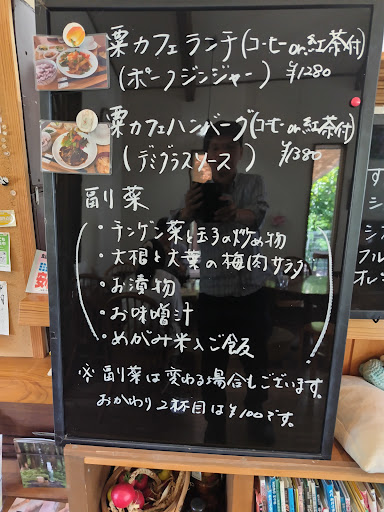 粟カフェランチ(コーヒーor紅茶付)
(ポークジンジャー) ¥1280
粟カフェハンバーグ(コーヒーor紅茶付)
(デミグラスソース) ¥1380
副菜
・チンゲン菜と玉子の炒め物
・大根と大葉の梅肉サラダ
・お漬物
・お味噌汁
・めがみ米入ご飯
※副菜は変わる場合もございます。
おかわり2杯目は¥100です。